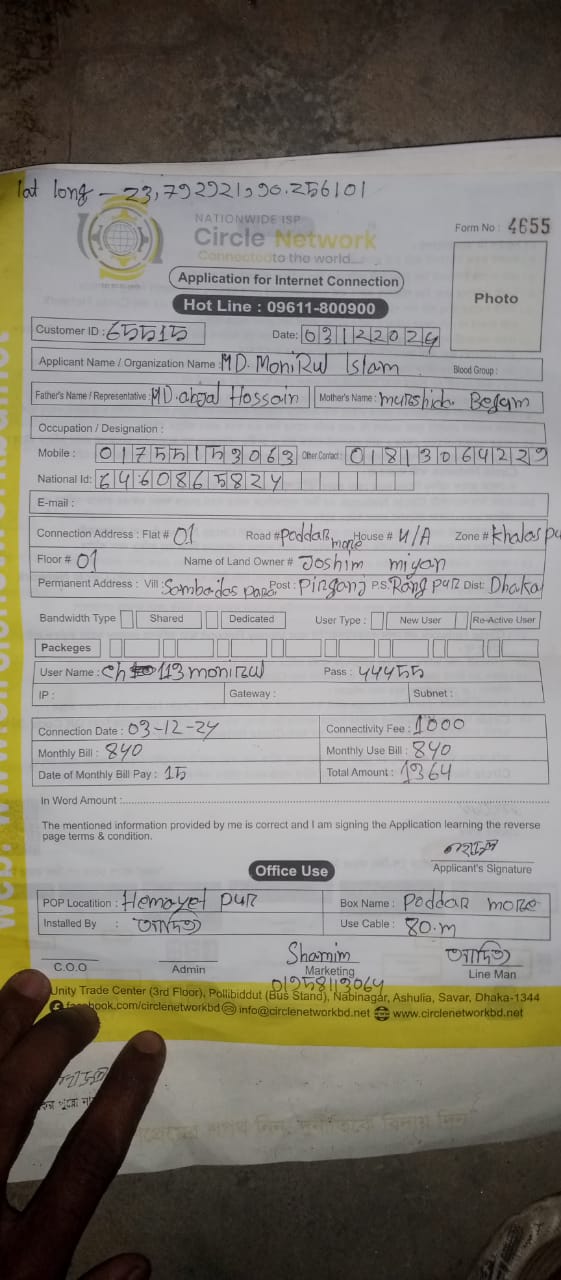 lat long - 23,792921,90.256101
NATIONWIDE ISP
Circle Network
Connected to the world...
Form No : 4655
Application for Internet Connection
Photo
Hot Line : 09611-800900
Customer ID : 65515
Date: 03122024
Applicant Name / Organization Name : MD. MoniRul Islam
Blood Group :
Father's Name / Representative : MD. abjal Hossain Mother's Name : murshida Begam
Occupation / Designation :
Mobile : 01755153063 Other Contact : 01813064229
National Id: 6460865824
E-mail :
Connection Address : Flat # 01 Road # poddar more House # N/A Zone # khalas pu
Floor # 01 Name of Land Owner # Joshim miyan
Permanent Address : Vill : Post : Pirganj P.S. Rangpur Dist: Dhaka
Bandwidth Type Shared Dedicated User Type : New User Re-Active User
Packeges
User Name : 113monirul Pass : 44455
IP : Gateway : Subnet :
Connection Date : 03-12-24 Connectivity Fee : 1000
Monthly Bill : 840 Monthly Use Bill : 840
Date of Monthly Bill Pay : 15 Total Amount : 1364
In Word Amount :
The mentioned information provided by me is correct and I am signing the Application learning the reverse
page terms & condition.
Applicant's Signature
Office Use
POP Locatition : Hemayet pur Box Name : Poddar more
Installed By : আদিত্য Use Cable : 80.m
Shamim আদিত্য
C.O.O Admin Marketing Line Man
01958113064
Unity Trade Center (3rd Floor), Pollibiddut (Bus Stand), Nabinagar, Ashulia, Savar, Dhaka-1344
facebook.com/circlenetworkbd info@circlenetworkbd.net www.circlenetworkbd.net